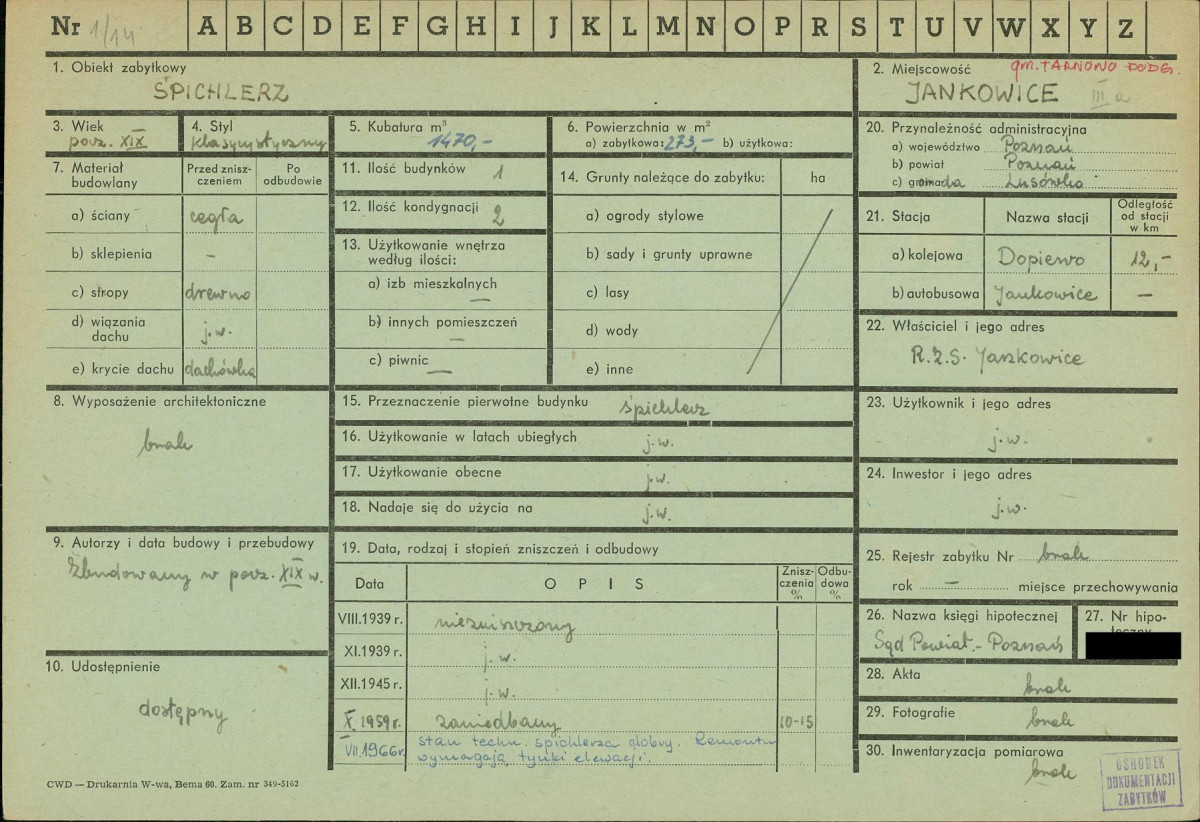 Nr 1/14 A B C D E F G H I J K L M N O P R S T U V W X Y Z
1. Obiekt zabytkowy
SPICHLERZ
2. Miejscowość gm. TARNOWO PODG.
JANKOWICE III a
3. Wiek
pocz. XIX
4. Styl
klasycystyczny
5. Kubatura m³
1470,-
6. Powierzchnia w m²
a) zabytkowa: 273,- b) użytkowa:
7. Materiał budowlany
Przed zniszczeniem
Po odbudowie
a) ściany cegła
b) sklepienia -
c) stropy drewno
d) wiązania dachu j.w.
e) krycie dachu dachówka
8. Wyposażenie architektoniczne
brak
9. Autorzy i data budowy i przebudowy
Zbudowany w pocz. XIX w.
10. Udostępnienie
dostępny
11. Ilość budynków 1
12. Ilość kondygnacji 2
13. Użytkowanie wnętrza według ilości:
a) izb mieszkalnych —
b) innych pomieszczeń —
c) piwnic —
14. Grunty należące do zabytku: ha
a) ogrody stylowe
b) sady i grunty uprawne
c) lasy
d) wody
e) inne
15. Przeznaczenie pierwotne budynku spichlerz
16. Użytkowanie w latach ubiegłych j.w.
17. Użytkowanie obecne j.w.
18. Nadaje się do użycia na j.w.
19. Data, rodzaj i stopień zniszczeń i odbudowy
Data OPIS Zniszczenia % Odbudowa %
VIII.1939 r. niezniszczony
XI.1939 r. j.w.
XII.1945 r. j.w.
X.1959 r. zaniedbany 10-15
VII.1966r. stan techn. spichlerza dobry. Remontu
wymagają tynki elewacji.
20. Przynależność administracyjna
a) województwo Poznań
b) powiat Poznań
c) gromada Lusówko
21. Stacja Nazwa stacji Odległość od stacji w km
a) kolejowa Dopiewo 12,-
b) autobusowa Jankowice —
22. Właściciel i jego adres
R.Z.S. Jankowice
23. Użytkownik i jego adres
j.w.
24. Inwestor i jego adres
j.w.
25. Rejestr zabytku Nr brak
rok — miejsce przechowywania
26. Nazwa księgi hipotecznej
Sąd Powiat. - Poznań
27. Nr hipoteczny
28. Akta
brak
29. Fotografie
brak
30. Inwentaryzacja pomiarowa
brak
OŚRODEK
DOKUMENTACJI
ZABYTKÓW
CWD — Drukarnia W-wa, Bema 60. Zam. nr 349-5162